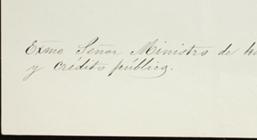 Exmo Señor Ministro de
y crédito pública.